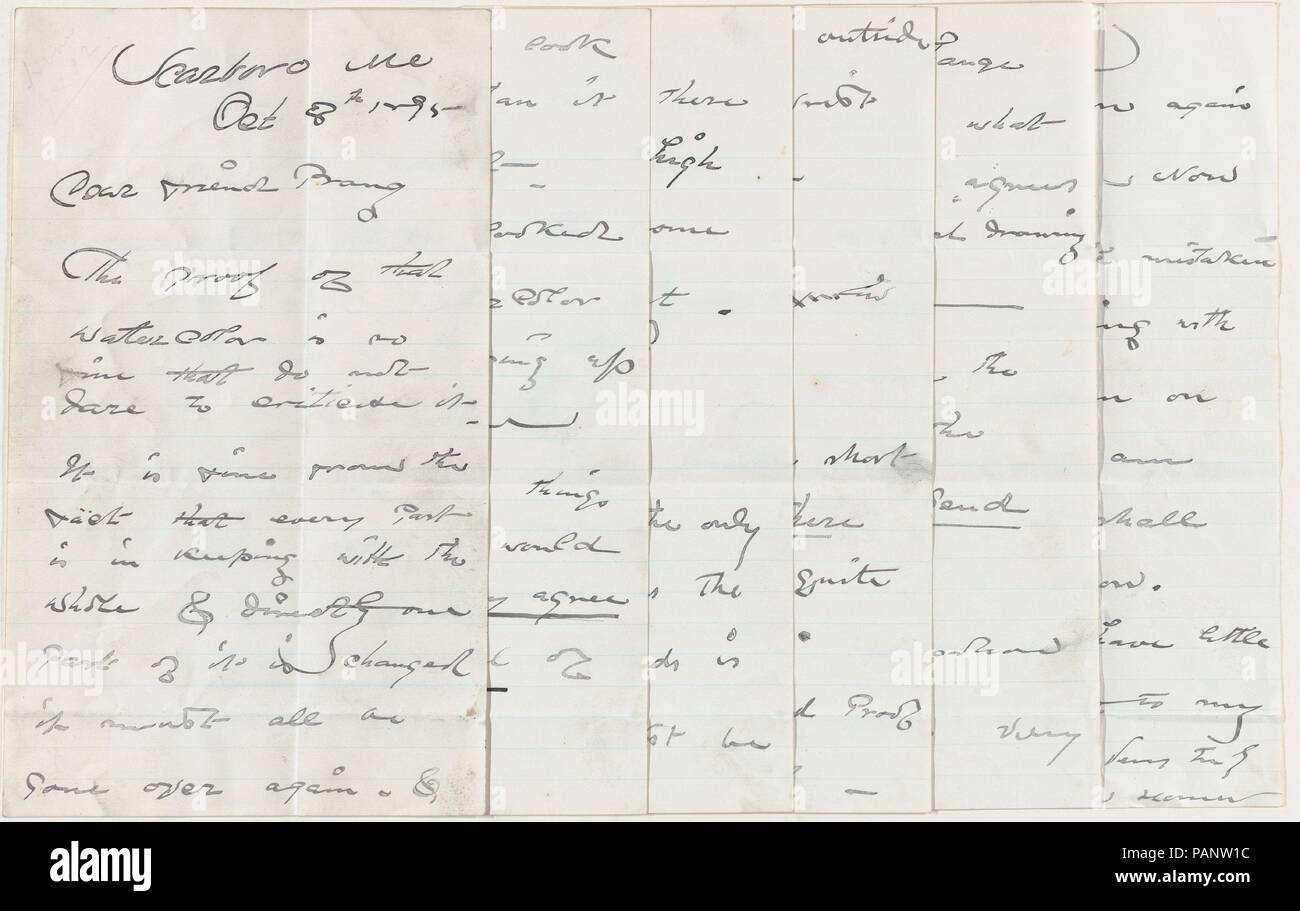 Scarboro Me
Oct 8th 1895
Dear friend Prang
The proof of that
water color is so
fine that do not
dare to criticise it
It is fine from the
fact that every Part
is in keeping with the
whole & directly one
part of it is changed
it must all be
gone over again. &
look
an it
looked
color
ing up
things
would
y agree
of
there
high
some
t.
the only
s the
ds is
st be
outside
short
here
quite
d Proof
what
agrees
drawing
, the
the
Send
very
n again
Now
mistaken
ing with
n on
am
shall
on.
have little
to my
Very Truly
Homer
alamy
Image ID: PANW1C
www.alamy.com